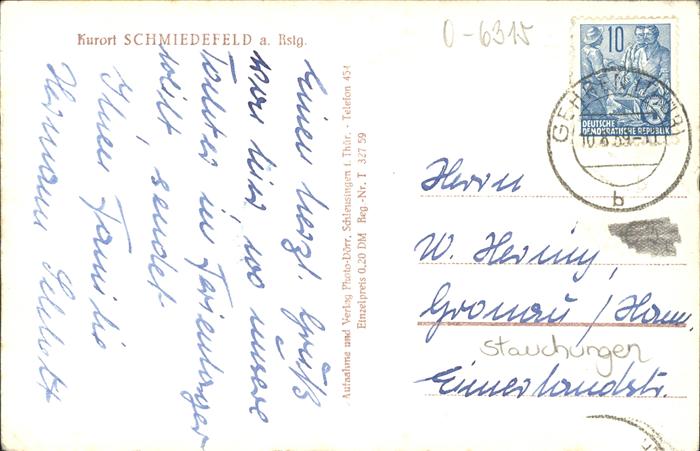 Kurort SCHMIEDEFELD a. Rstg.
0-6315
10
DEUTSCHE
DEMOKRATISCHE REPUBLIK
GEHREN (THÜR)
10.8.59-11
b
Einen herzl. Gruß
von hier, wo unsere
Tochter im Ferienlager
weilt, sendet
Ihnen Familie
Hermann
Aufnahme und Verlag Photo-Dörr, Schleusingen i. Thür. - Telefon 454
Einzelpreis 0,20 DM Reg.-Nr. T 327 59
Herrn
W. Hening,
Gronau / Hann.
Stauchungen
Eimerlandstr.